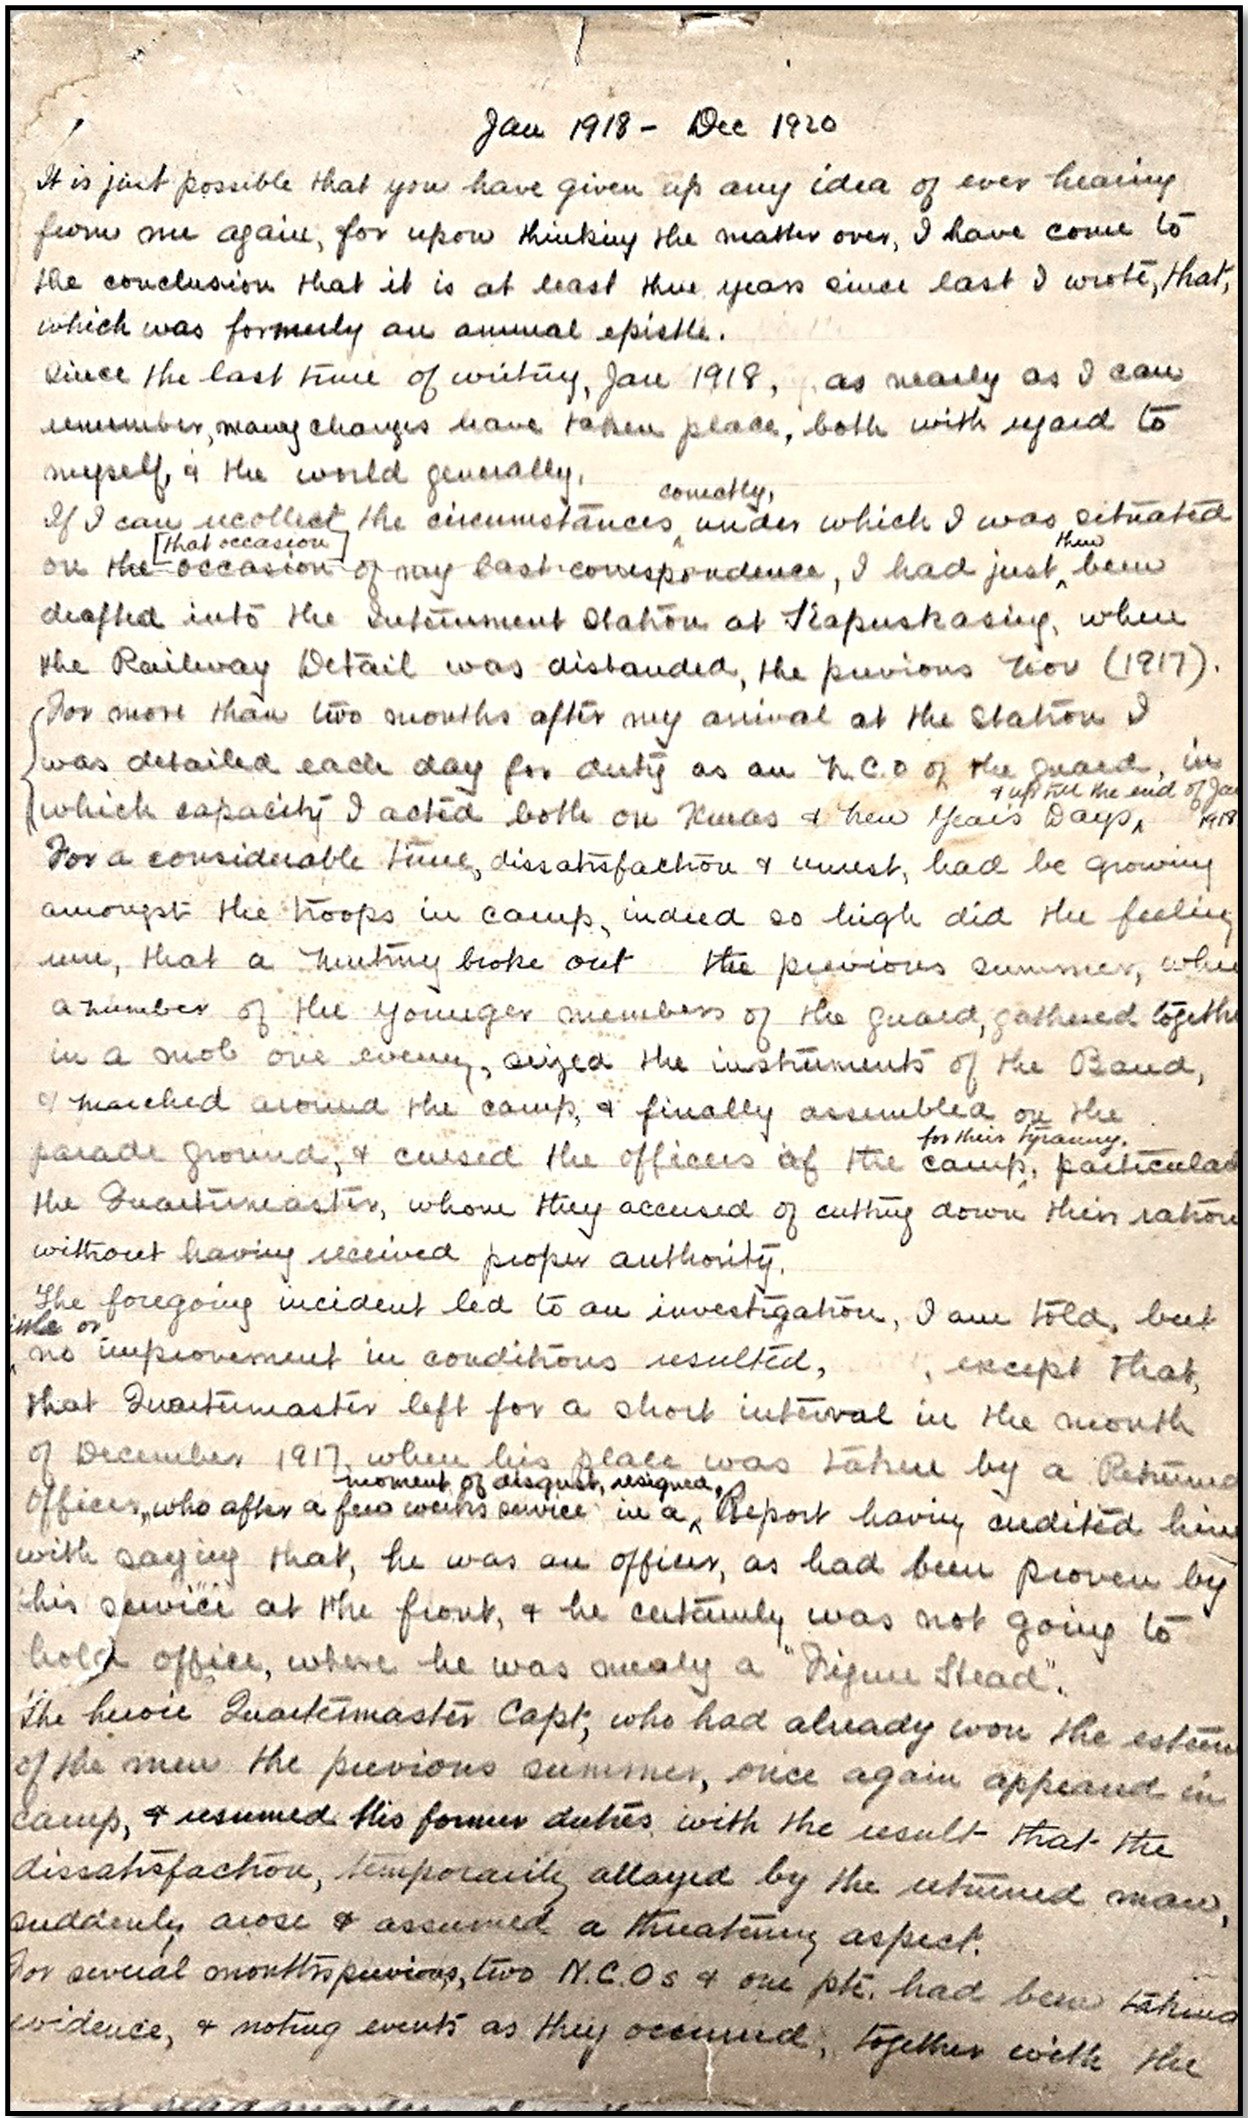 Jan 1918 - Dec 1920
It is just possible that you have given up any idea of ever hearing
from me again, for upon thinking the matter over, I have come to
the conclusion that it is at least three years since last I wrote, that,
which was formerly an annual epistle.
Since the last time of writing, Jan 1918, as nearly as I can
remember, many changes have taken place, both with regard to
myself, & the world generally.
correctly,
If I can recollect the circumstances under which I was situated
[that occasion] then
on the occasion of my last correspondence, I had just been
drafted into the Internment Station at Kapuskasing, when
the Railway Detail was disbanded, the previous Nov (1917).
For more than two months after my arrival at the Station I
was detailed each day for duty as an N.C.O of the guard, in
& up till the end of Jan
which capacity I acted both on Xmas & New Years Days, 1918
For a considerable time, dissatisfaction & unrest, had be growing
amongst the troops in camp, indeed so high did the feeling
run, that a Mutiny broke out the previous summer, when
a number of the younger members of the guard, gathered together
in a mob one evening, seized the instruments of the Band,
& marched around the camp, & finally assembled on the
for their tyranny.
parade ground, & cursed the officers of the camp, particularly
the Quartermaster, whom they accused of cutting down their rations
without having received proper authority.
The foregoing incident led to an investigation, I am told, but
little or
no improvement in conditions resulted, , except that,
that Quartermaster left for a short interval in the month
of December 1917, when his place was taken by a Returned
moment of disgust, resigned,
Officer, who after a few weeks service in a Report having credited him
with saying that, he was an officer, as had been proven by
his service at the front, & he certainly was not going to
hold office, where he was mealy a "Figure Head".
The heroic Quartermaster Capt, who had already won the esteem
of the men the previous summer, once again appeared in
camp, & resumed his former duties with the result that the
dissatisfaction, temporarily allayed by the returned man,
suddenly arose & assumed a threatening aspect.
For several months previous, two N.C.Os & one pte. had been taking
evidence, & noting events as they occurred, together with the